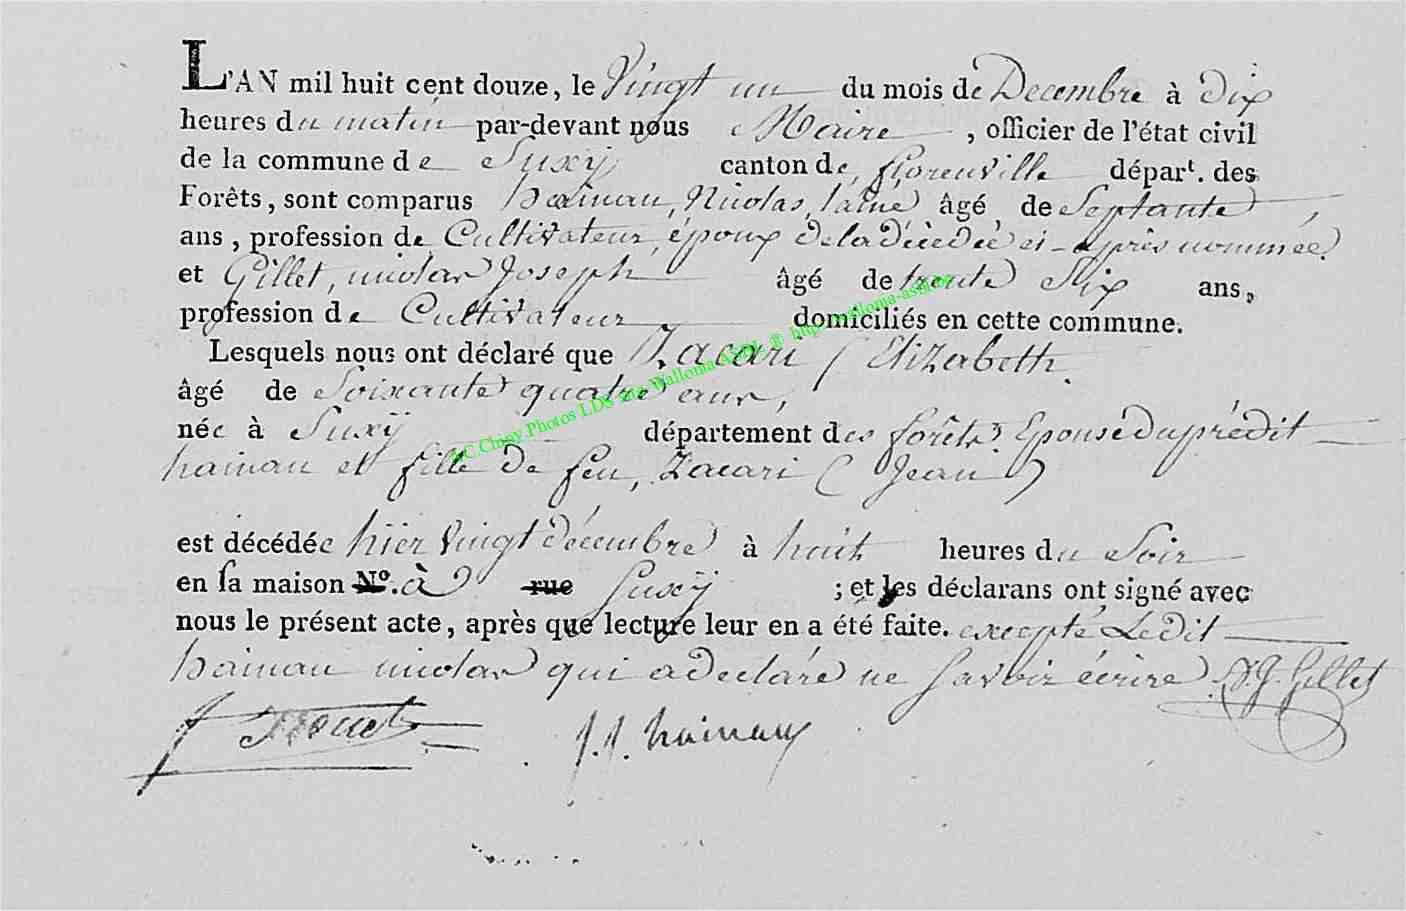 L'AN mil huit cent douze, le Vingt un du mois de Decembre à dix
heures du matin par-devant nous Maire, officier de l'état civil
de la commune de Suxÿ canton de florenville départ. des
Forêts, sont comparus hainau, Nicolas, lainé âgé de Septante
ans, profession de Cultivateur, époux de la décédée ci-après nommée
et Gillet, nicolas Joseph âgé de trente Six ans,
profession de Cultivateur domiciliés en cette commune.
Lesquels nous ont déclaré que Zacari ( Elizabeth
âgé de Soixante quatre ans,
née à Suxÿ département des forêts. Epouse du prédit
hainau et fille de feu, Zacari ( Jean )
est décédée hier vingt décembre à huit heures du Soir
en sa maison No. à rue Suxÿ ; et les déclarans ont signé avec
nous le présent acte, après que lecture leur en a été faite. excepté Ledit
hainau nicolas qui a declaré ne Savoir écrire N. J. Gillet
J. J. hainaux